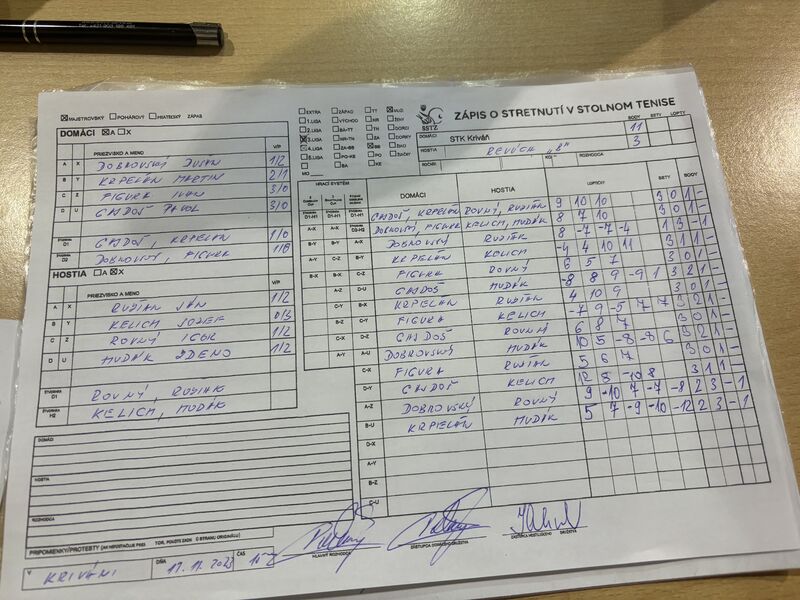 ☒ MAJSTROVSKÝ ☐ POHÁROVÝ ☐ PRIATEĽSKÝ ZÁPAS
☐ EXTRA ☐ ZÁPAD ☐ TT ☒ MUŽI
☐ 1.LIGA ☐ VÝCHOD ☐ NR ☐ ŽENY
☐ 2.LIGA ☐ BA-TT ☐ TN ☐ DORCI
☒ 3.LIGA ☐ NR-TN ☐ ZA ☐ DORKY
☐ 4.LIGA ☐ ZA-BB ☒ BB ☐ ŽIACI
☐ 5.LIGA ☐ PO-KE ☐ PO ☐ ŽIAČKY
☐ BA ☐ KE
MO
SSTZ
ZÁPIS O STRETNUTÍ V STOLNOM TENISE
BODY SETY LOPTY
DOMÁCI STK Kriváň 11
HOSTIA REVÚCA "B" 3
ROČNÍK KOLO ROZHODCA
DOMÁCI ☒ A ☐ X
PRIEZVISKO A MENO V/P
A X DOBROVSKÝ DUŠAN 1/2
B Y KRPELÁN MARTIN 2/1
C Z FIGURA IVAN 3/0
D U GAJDOŠ PAVOL 3/0
ŠTVORHRA D1 GAJDOŠ, KRPELÁN 1/0
ŠTVORHRA D2 DOBROVSKÝ, FIGURA 1/0
HOSTIA ☐ A ☒ X
PRIEZVISKO A MENO V/P
A X RUŽIAN JÁN 1/2
B Y KELICH JOZEF 0/3
C Z ROVNÝ IGOR 1/2
D U HUDÁK ZDENO 1/2
ŠTVORHRA D1 ROVNÝ, RUŽIAN
ŠTVORHRA H2 KELICH, HUDÁK
HRACÍ SYSTÉM DOMÁCI HOSTIA LOPTIČKY SETY BODY
D1-H1 GAJDOŠ, KRPELÁN ROVNÝ, RUŽIAN 9 10 10 3 0 1 -
D2-H2 DOBROVSKÝ, FIGURA KELICH, HUDÁK 8 7 10 3 0 1 -
A-X DOBROVSKÝ RUŽIAN 8 -7 -7 -4 1 3 - 1
B-Y KRPELÁN KELICH -4 4 10 11 3 1 1 -
C-Z FIGURA ROVNÝ 6 5 7 3 0 1 -
D-U GAJDOŠ HUDÁK -8 8 9 -9 1 3 2 1 -
B-X KRPELÁN RUŽIAN 4 10 9 3 0 1 -
C-Y FIGURA KELICH -7 9 -5 7 7 3 2 1 -
D-Z GAJDOŠ ROVNÝ 6 8 7 3 0 1 -
A-U DOBROVSKÝ HUDÁK 10 5 -8 -8 6 3 2 1 -
C-X FIGURA RUŽIAN 5 6 7 3 0 1 -
D-Y GAJDOŠ KELICH 12 8 -10 8 3 1 1 -
A-Z DOBROVSKÝ ROVNÝ 9 -10 7 -7 -8 2 3 - 1
B-U KRPELÁN HUDÁK 5 7 -9 -10 -12 2 3 - 1
D-X
A-Y
B-Z
C-U
DOMÁCI
HOSTIA
ROZHODCA
PRIPOMIENKY/PROTESTY
HLAVNÝ ROZHODCA
ZÁSTUPCA DOMÁCEHO DRUŽSTVA
ZÁSTUPCA HOSTUJÚCEHO DRUŽSTVA
V KRIVÁNI DŇA 11.11.2023 ČAS